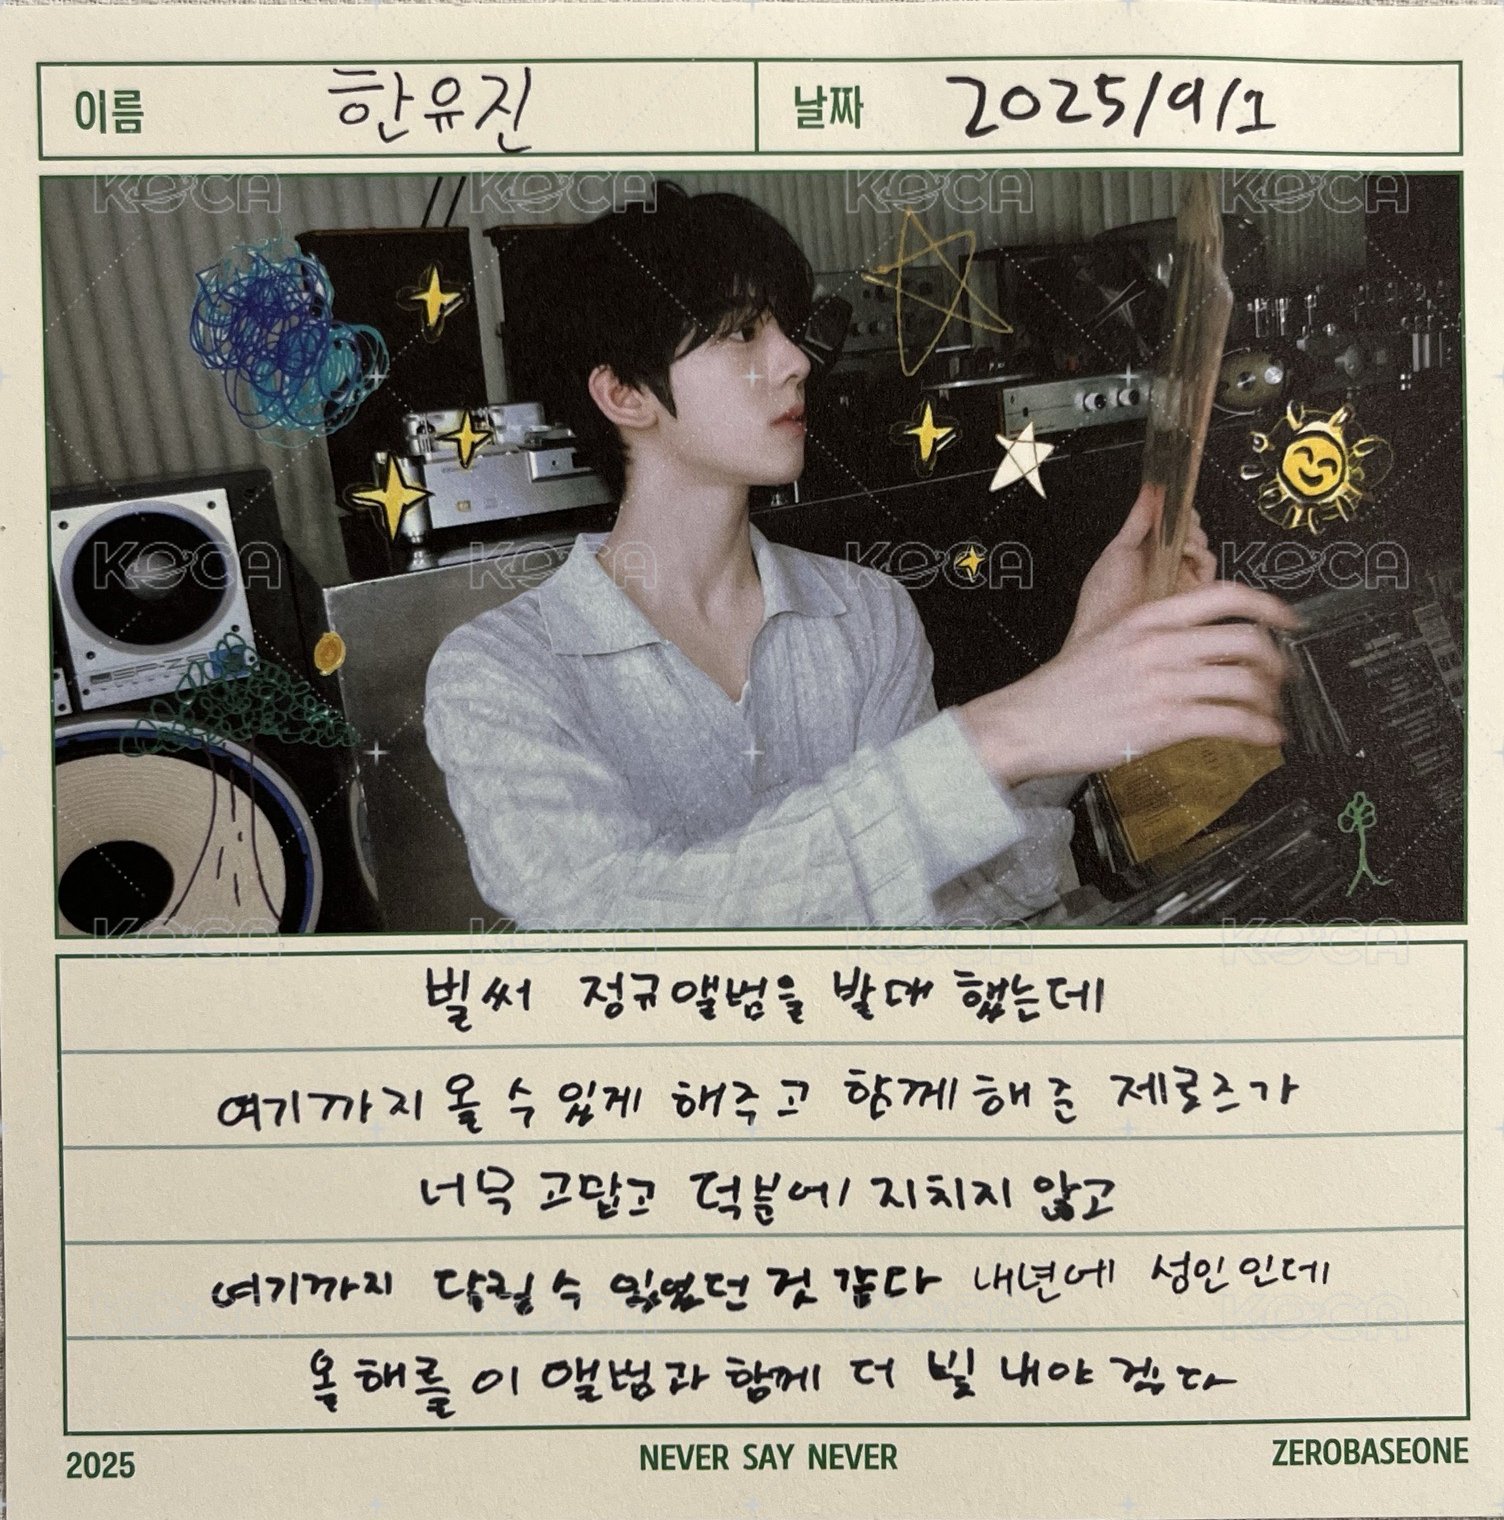 이름 한유진 날짜 2025/9/1
KOCA KOCA KOCA KOCA
KOCA KOCA KOCA KOCA
KOCA KOCA KOCA KOCA
벌써 정규앨범을 발매 했는데
여기까지 올 수 있게 해주고 함께 해 준 제로즈가
너무 고맙고 덕분에 지치지 않고
여기까지 달릴 수 있었던 것 같다 내년에 성인인데
올해를 이 앨범과 함께 더 빛 내야 겠다
2025 NEVER SAY NEVER ZEROBASEONE